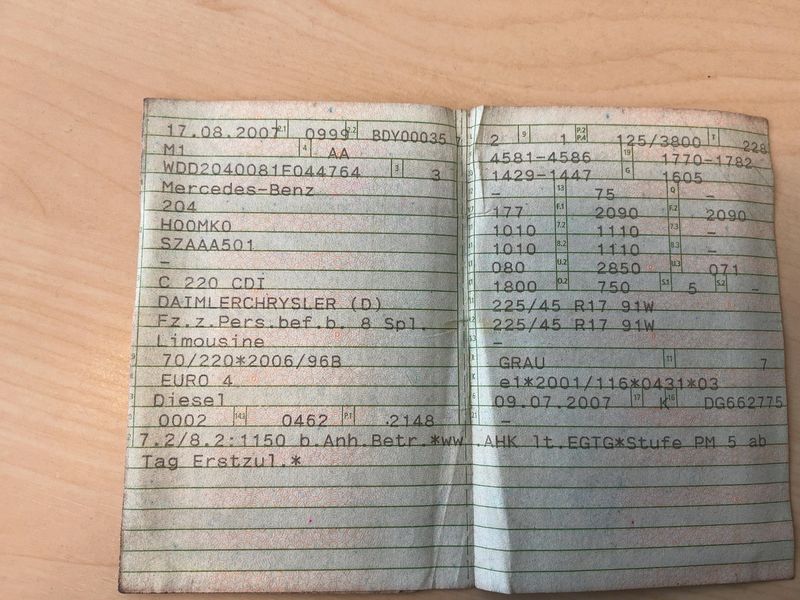 17.08.2007 2.1 0999 2.2 BDY00035
M1 4 AA
WDD2040081F044764 3 3
Mercedes-Benz
204
H00MK0
SZAAA501
–
C 220 CDI
DAIMLERCHRYSLER (D)
Fz.z.Pers.bef.b. 8 Spl.
Limousine
70/220*2006/96B
EURO 4
Diesel
0002 14.1 0462 P.1 2148
2 9 1 P.2 P.4 125/3800 T 228
4581-4586 19 1770-1782
1429-1447 G 1605
– 13 75 Q –
177 F.1 2090 F.2 2090
1010 7.2 1110 7.3 –
1010 8.2 1110 8.3 –
080 U.2 2850 U.3 071
1800 O.2 750 S.1 5 S.2 –
225/45 R17 91W
225/45 R17 91W
–
GRAU 11 7
e1*2001/116*0431*03
09.07.2007 17 K 16 DG662775
21 –
7.2/8.2:1150 b.Anh.Betr.*ww.AHK lt.EGTG*Stufe PM 5 ab
Tag Erstzul.*